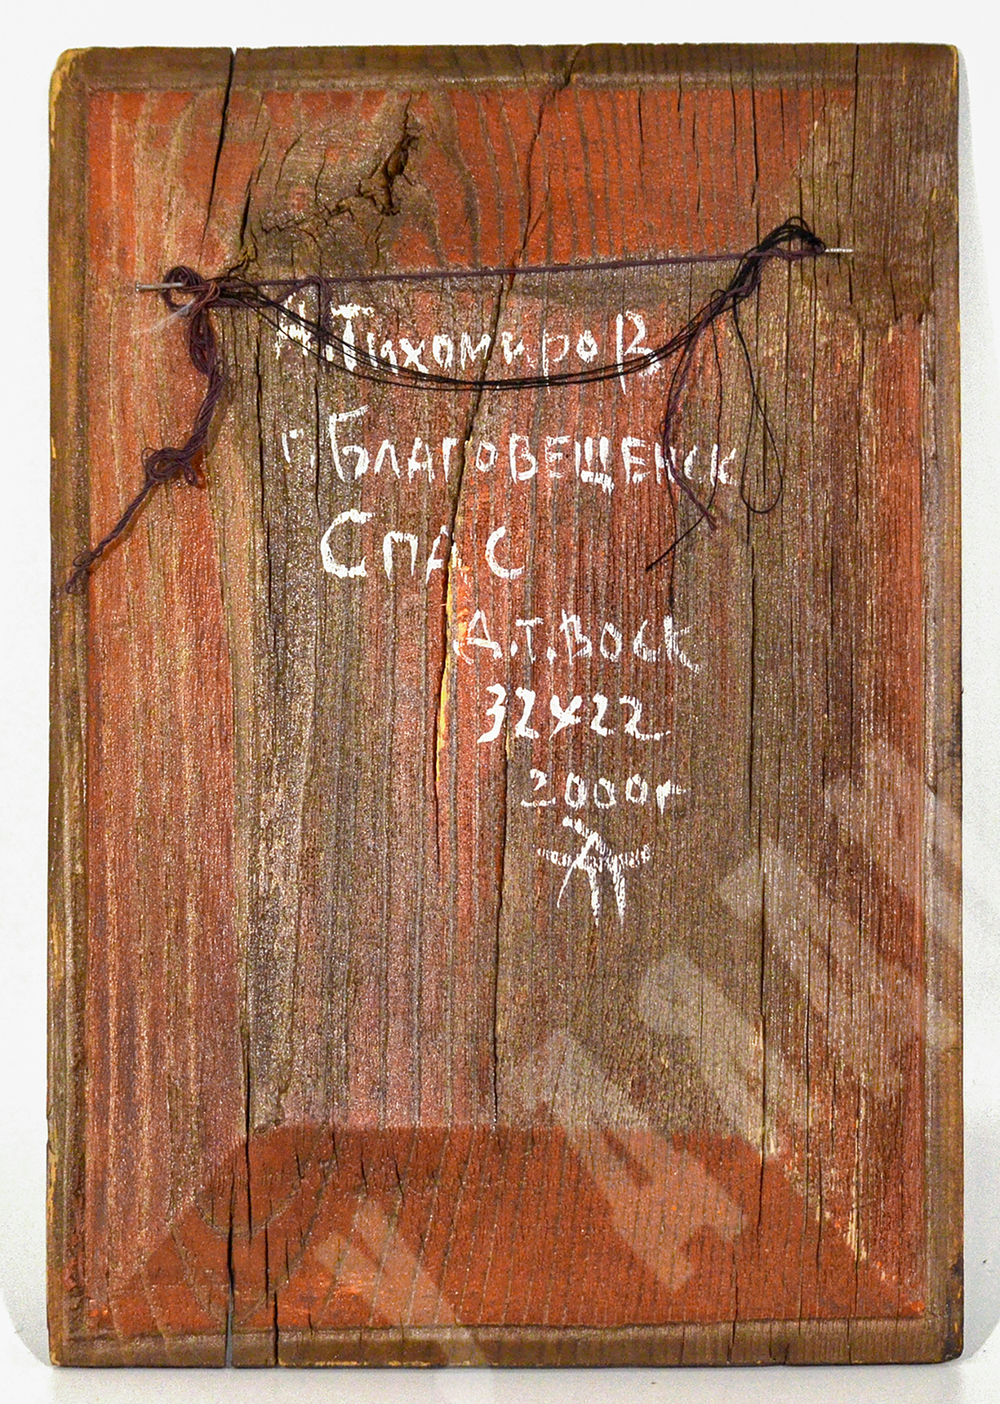 А.Тихомиров
г Благовещенск
Спас
Д.Т.Воск
32х22
2000г
АТ